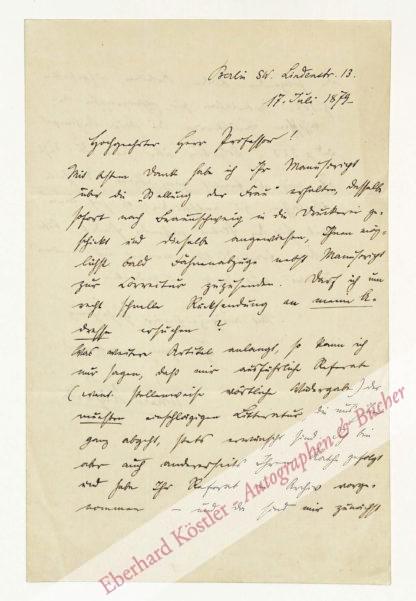 Berlin SW. Lindenstr. 13.
17. Juli 1879
Hochgeehrter Herr Professor!
Mit bestem Dank habe ich Ihr Manuscript
über die "Stellung der Frau" erhalten, dasselbe
sofort nach Braunschweig in die Druckerei ge-
schickt und dieselbe angewiesen, Ihnen mög-
lichst bald Fahnenabzüge nebst Manuscript
zur Correctur zuzusenden. Darf ich um
recht schnelle Rücksendung an meine A-
dresse ersuchen?
Was weitere Artikel anlangt, so kann ich
nur sagen, daß mir ausführliche Referate
(event. stellenweise wörtliche Wiedergabe) der
neuesten einschlägigen Litteratur, die mir
ganz abgeht, stets erwünscht sind. Ich bin
aber auch andererseits Ihrem Rathe gefolgt
und habe Ihr Referat Archiv vorge-
nommen – und da sind mir zunächst
Eberhard Köstler - Autographen & Bücher